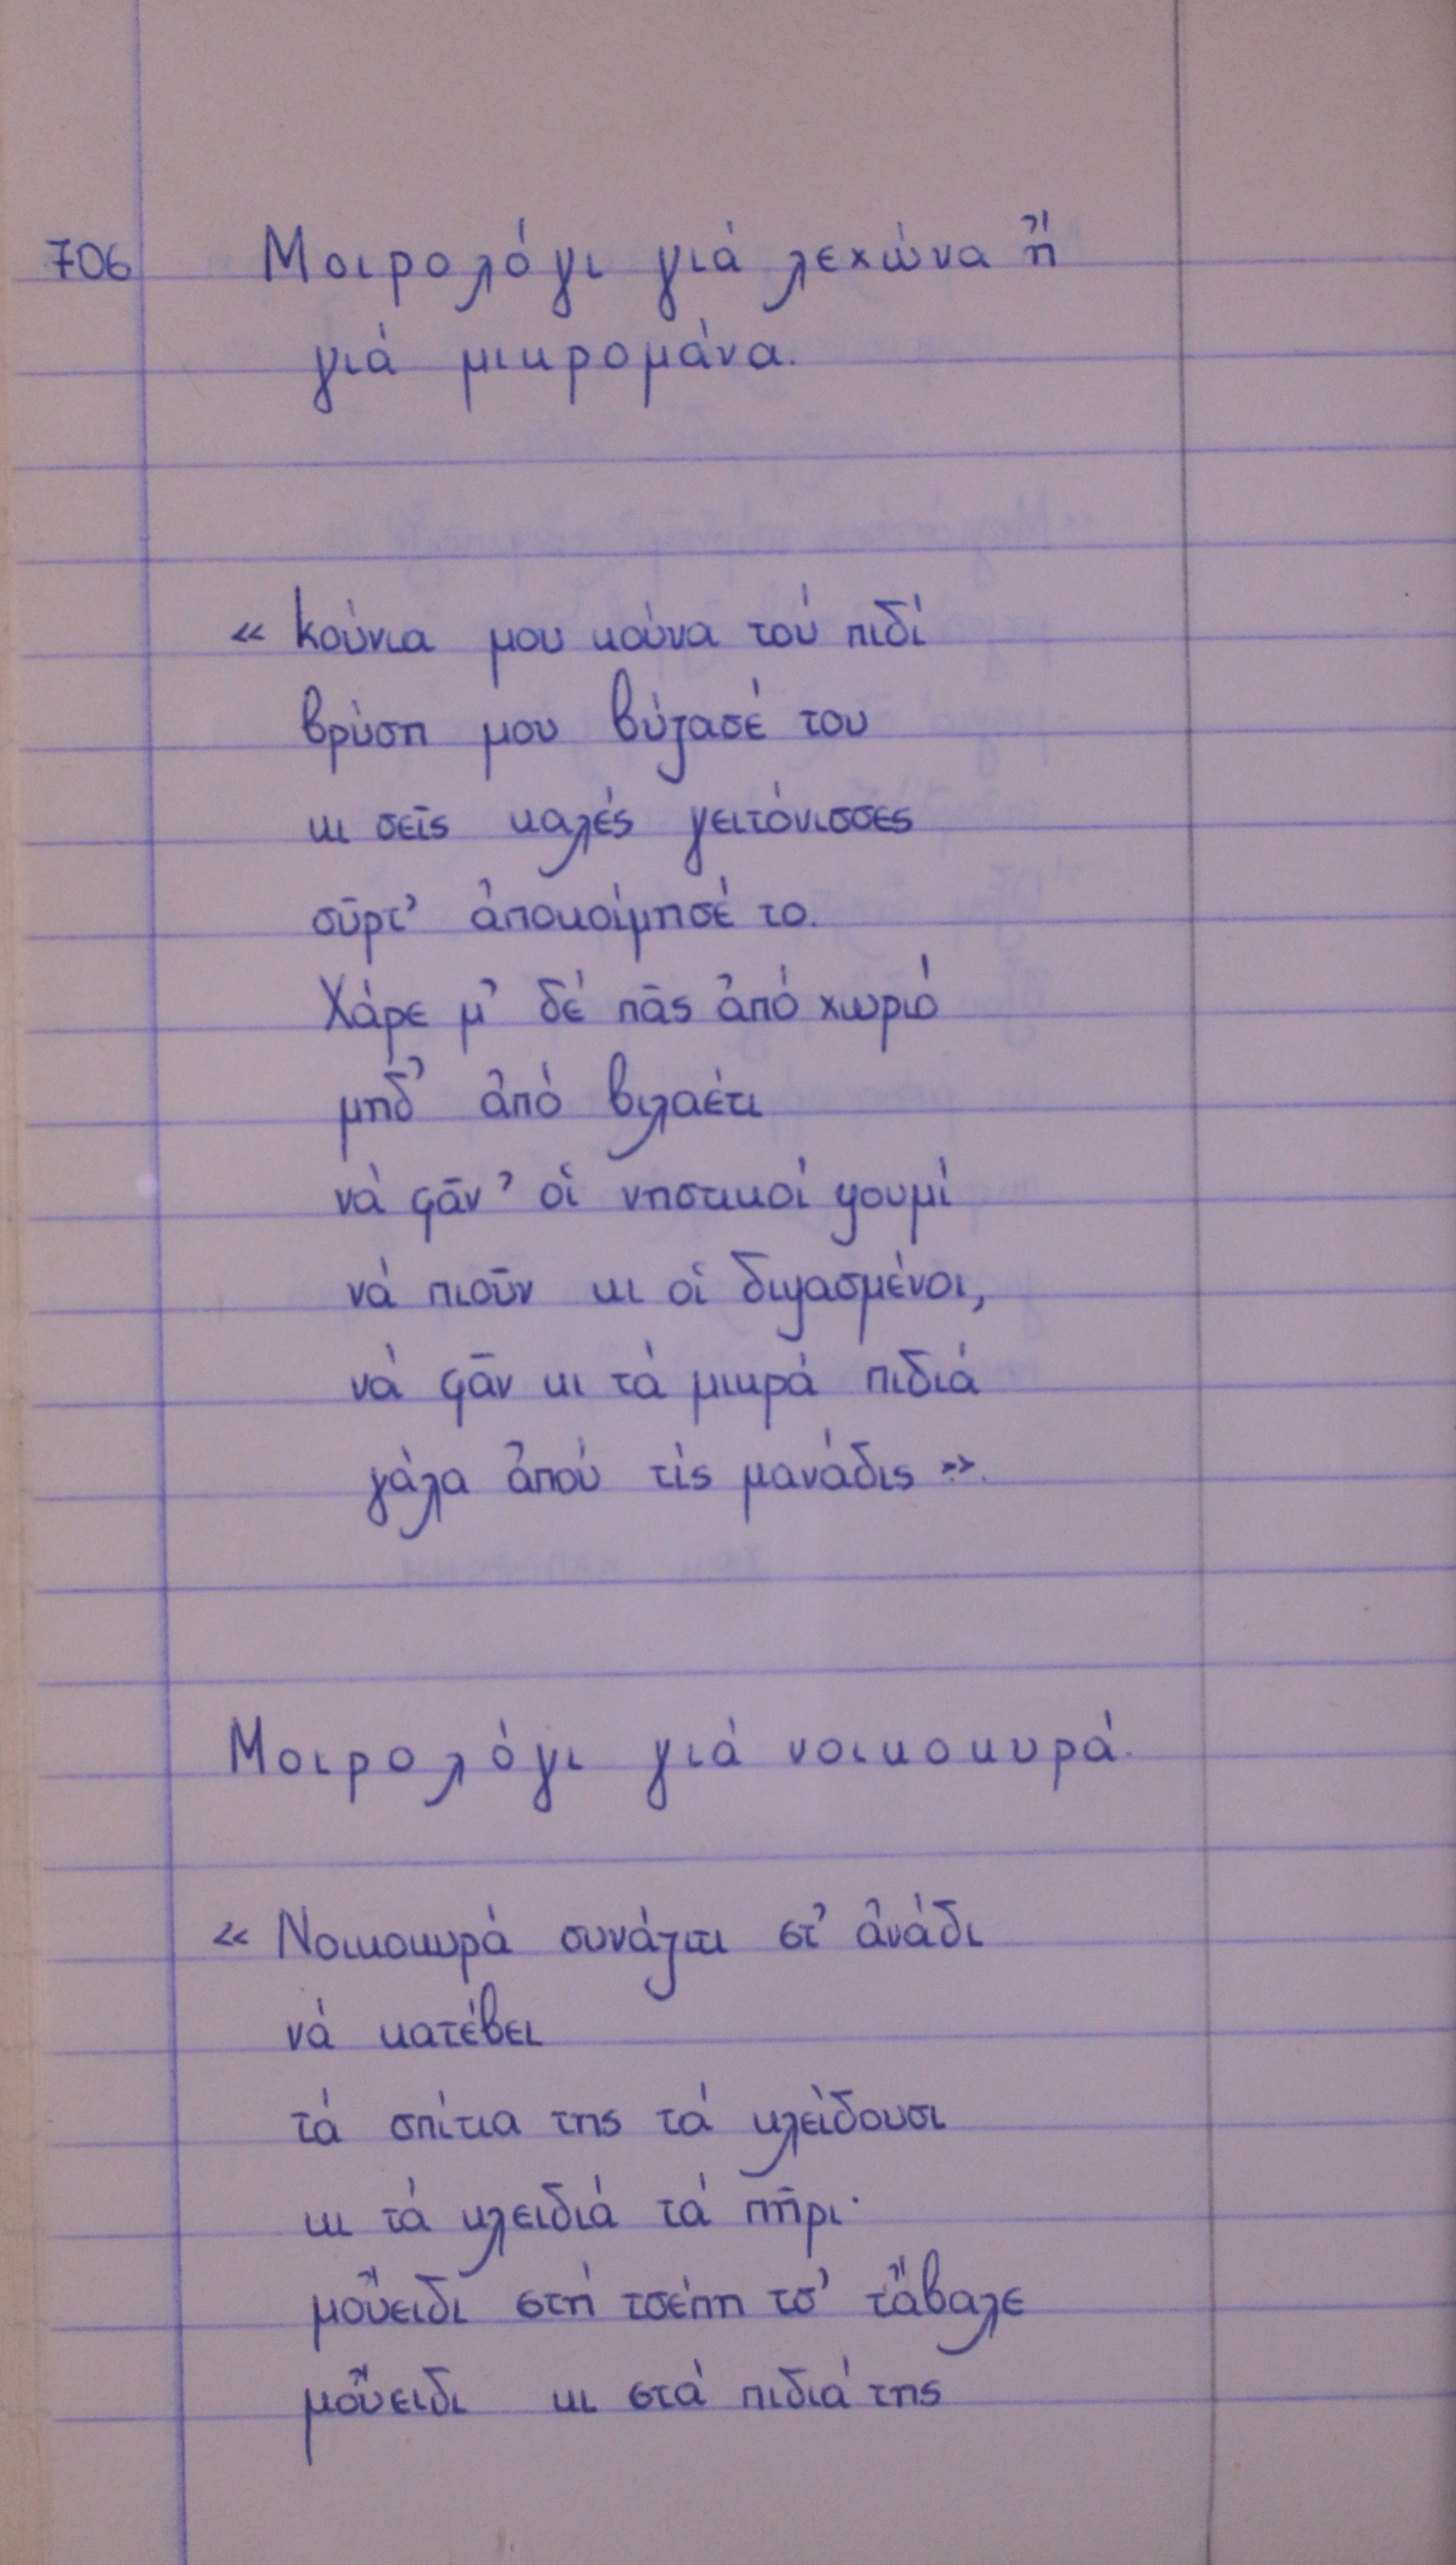 706 Μοιρολόγι γιά λεχώνα ἤ
γιά μικρομάνα.
« Κούνια μου κούνα τού πιδί
βρύση μου βύζασέ του
κι σεῖς καλές γειτόνισσες
σῦρτ' ἀποκοίμησέ το.
Χάρε μ' δέ πᾶς ἀπό χωριό
μηδ' ἀπό βιλαέτι
νά φᾶν' οἱ νηστικοί ψουμί
νά πιοῦν κι οἱ διψασμένοι,
νά φᾶν κι τά μικρά πιδιά
γάλα ἀπού τίς μανάδις ».
Μοιρολόγι γιά νοικοκυρά.
« Νοικοκυρά συνάζιτι στ' ἀνάδι
νά κατέβει
τά σπίτια της τά κλείδουσι
κι τά κλειδιά τά πῆρι·
μοὔειδι στή τσέπη τσ' τἄβαλε
μοὔειδι κι στά πιδιά της